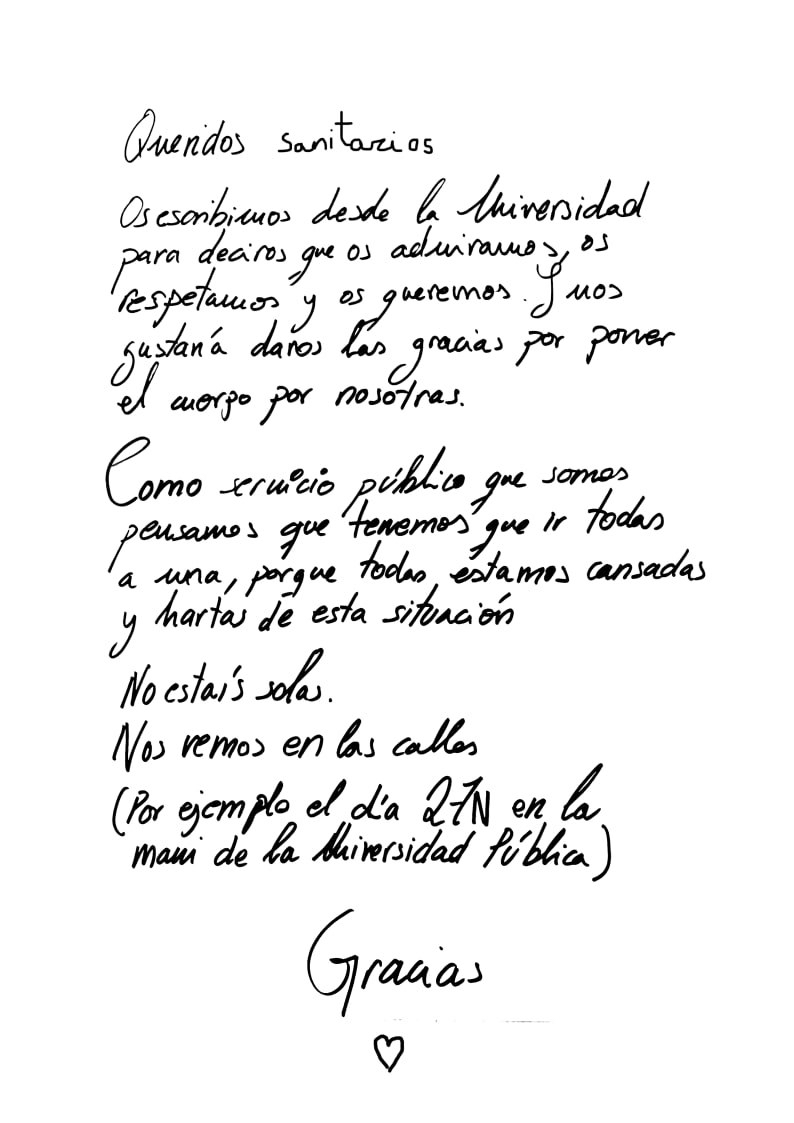 Queridos sanitarios
Os escribimos desde la Universidad
para deciros que os admiramos, os
respetamos y os queremos. Y nos
gustaría daros las gracias por poner
el cuerpo por nosotras.
Como servicio público que somos
pensamos que tenemos que ir todas
a una, porque todas estamos cansadas
y hartas de esta situación
No estáis solas.
Nos vemos en las calles
(Por ejemplo el día 27N en la
mani de la Universidad Pública)
Gracias
♡